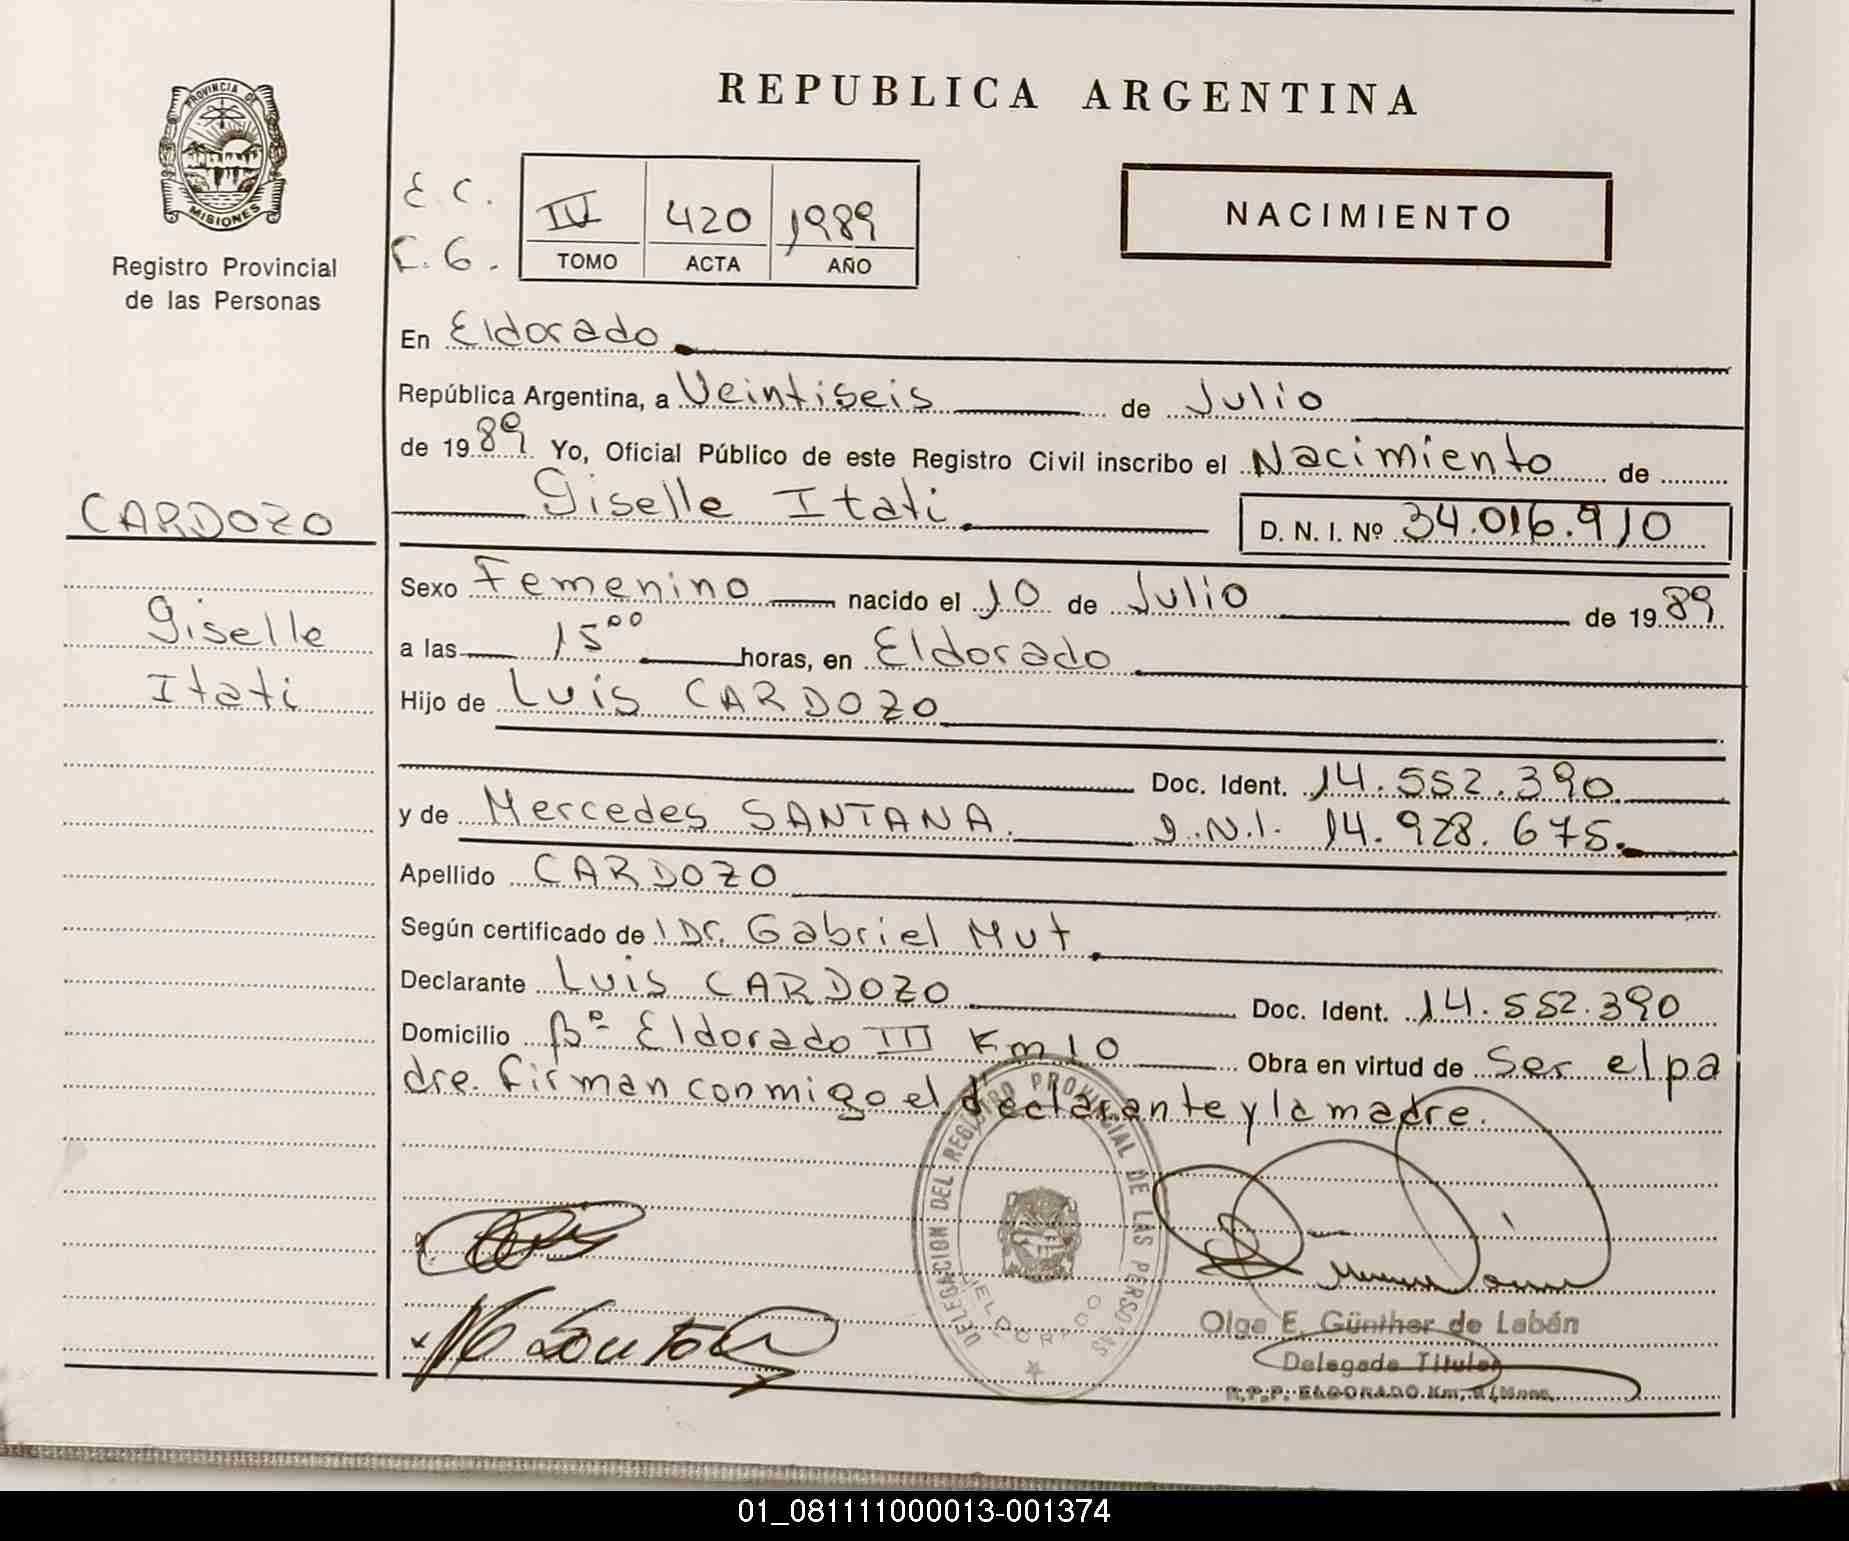 REPUBLICA ARGENTINA
PROVINCIA DE
MISIONES
Registro Provincial
de las Personas
E. C.
C. G.
IV 420 1989
TOMO ACTA AÑO
NACIMIENTO
En Eldorado
República Argentina, a Veintiseis de Julio
de 1989 Yo, Oficial Público de este Registro Civil inscribo el Nacimiento de
CARDOZO
Giselle Itati D. N. I. Nº 34.016.910
Sexo Femenino nacido el 10 de Julio de 1989
Giselle
a las 15 00 horas, en Eldorado
Itati
Hijo de Luis CARDOZO
Doc. Ident. 14.552.390
y de Mercedes SANTANA. D.N.I. 14.928.675.
Apellido CARDOZO
Según certificado de l Dr. Gabriel Mut
Declarante Luis CARDOZO Doc. Ident. 14.552.390
Domicilio Bº Eldorado III Km 10 Obra en virtud de Ser el pa
dre. Firman conmigo el declarante y la madre.
DELEGACION DEL REGISTRO PROVINCIAL DE LAS PERSONAS
ELDORADO
Olga E. Günther de Labán
Delegada Titular
R.P.P. ELDORADO Km.
01_081111000013-001374